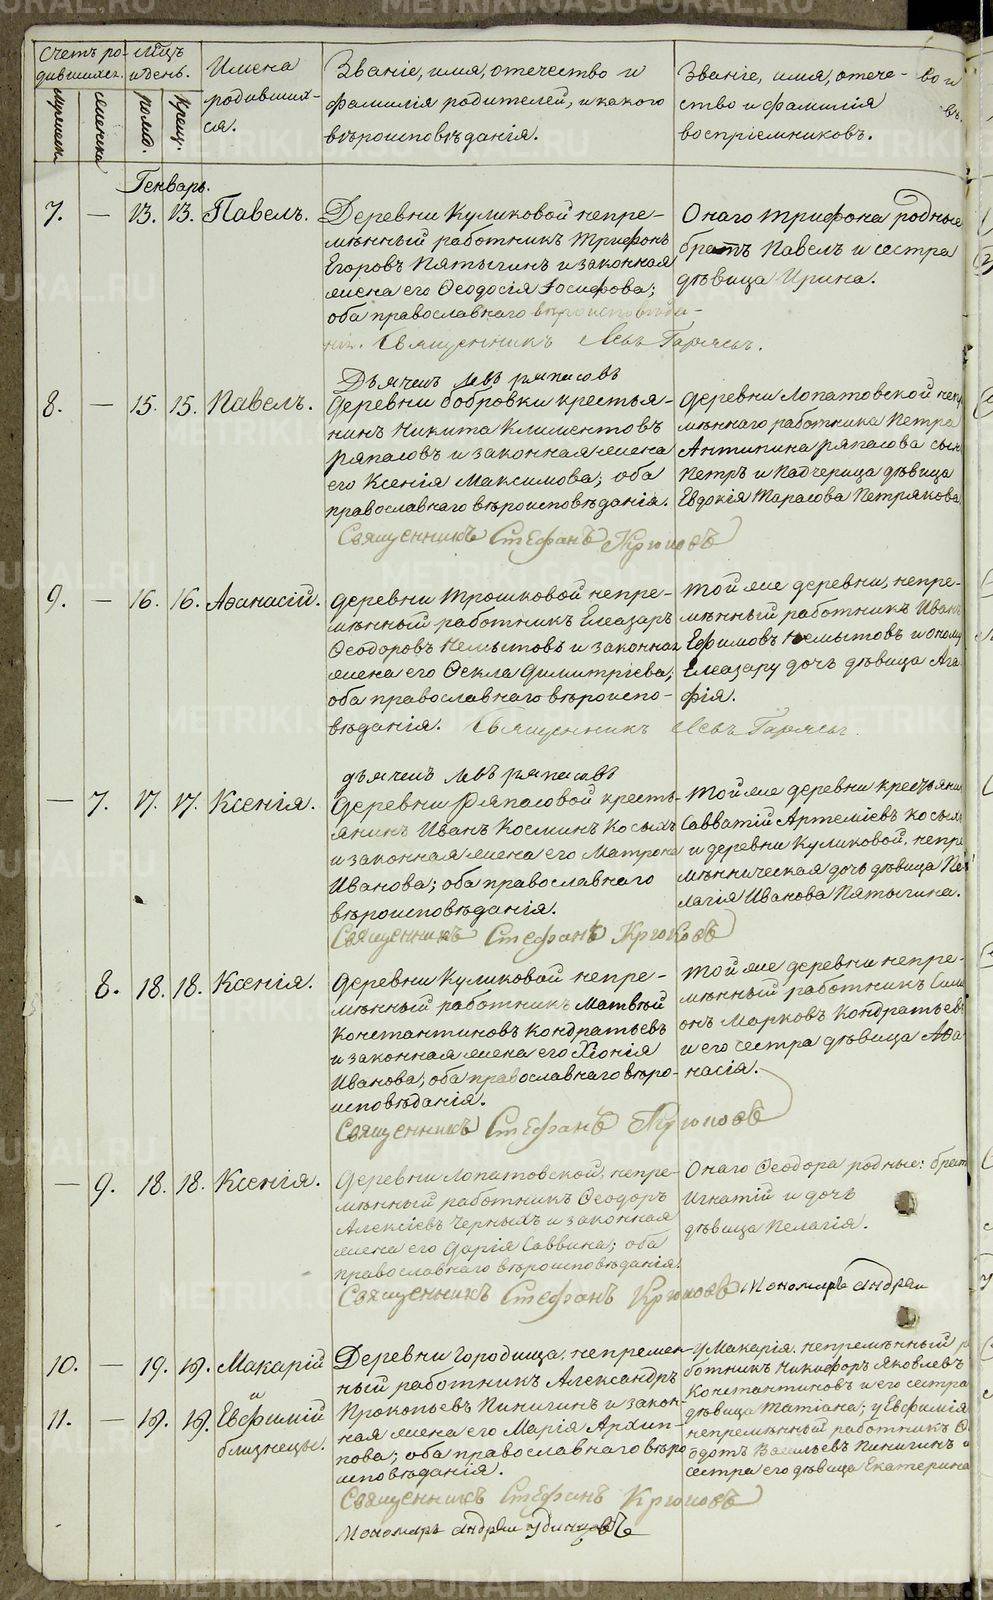 Счетъ ро-
дившихся.
Мѣсяцъ
и день.
Имена
родивших-
ся.
Званіе, имя, отечество и
фамилія родителей, и какого
вѣроисповѣданія.
Званіе, имя, отече-
ство и фамилія
воспріемниковъ.
мужеск.
женска
рожд.
крещ.
Генварь.
7. — 13. 13. Павелъ.
Деревни Куликовой непре-
мѣнный работникъ Трифонъ
Егоровъ Пятыгинъ и законная
жена его Ѳеодосія Іосифова;
оба православнаго вѣроисповѣда-
нія. Священникъ Левъ Гаряевъ.
Онаго Трифона родные
братъ Павелъ и сестра
дѣвица Ирина.
Дьячекъ Левъ Ряпасовъ
8. — 15. 15. Павелъ.
Деревни Бобровки крестья-
нинъ Никита Климентовъ
Ряпасовъ и законная жена
его Ксенія Максимова; оба
православнаго вѣроисповѣданія.
Священникъ Стефанъ Крюковъ
Деревни Лопатовской
мѣннаго работника Петра
Антипина Ряпасова сынъ
Петръ и падчерица дѣвица
Евдокія Тарасова Петрякова
9. — 16. 16. Аѳанасій.
Деревни Трошковой непре-
мѣнный работникъ Елеазаръ
Ѳеодоровъ Немытовъ и законная
жена его Ѳекла Димитріева;
оба православнаго вѣроиспо-
вѣданія. Священникъ Левъ Гаряевъ
Той же деревни, непре-
мѣнный работникъ Иванъ
Ефимовъ Немытовъ и оному
Елеазару дочь дѣвица Ага-
фія.
Дьячекъ Левъ Ряпасовъ
— 7. 17. 17. Ксенія.
Деревни Ряпасовой кресть-
янинъ Иванъ Косминъ Косыхъ
и законная жена его Матрона
Иванова; оба православнаго
вѣроисповѣданія.
Священникъ Стефанъ Крюковъ
Той же деревни крестьянинъ
Савватій Артеміевъ Косыхъ
и деревни Куликовой, непре
мѣнническая дочь дѣвица Пе
лагія Иванова Пятыгина.
8. 18. 18. Ксенія.
Деревни Куликовой непре-
мѣнный работникъ Матвѣй
Константиновъ Кондратьевъ
и законная жена его Хіонія
Иванова, оба православнаго вѣро-
исповѣданія.
Священникъ Стефанъ Крюковъ
Той же деревни непре-
мѣнный работникъ Сим
онъ Марковъ Кондратьевъ
и его сестра дѣвица Аѳа-
насія.
— 9. 18. 18. Ксенія.
Деревни Лопатовской, непре-
мѣнный работникъ Ѳеодоръ
Алексіевъ Черныхъ и законная
жена его Дарія Саввина; оба
православнаго вѣроисповѣданія.
Священникъ Стефанъ Крюковъ Пономарь Андрей
Онаго Ѳеодора родные: братъ
Игнатій и дочь
дѣвица Пелагія.
10. — 19. 19. Макарій
и
11. — 19. 19. Евѳимій
близнецы.
Деревни Городища, непремен-
ный работникъ Александръ
Прокопьевъ Пинигинъ и закон-
ная жена его Марія Архип-
пова; оба православнаго вѣро
исповѣданія.
Священникъ Стефанъ Крюковъ
Пономарь Андрей Удинцовъ
у Макарія, непремѣнный р
ботникъ Никифоръ Яковлевъ
Константиновъ и его сестра
дѣвица Татіана; у Евѳимія
непремѣнный работникъ Ѳ
одотъ Васильевъ Пинигинъ и
сестра его дѣвица Екатерина